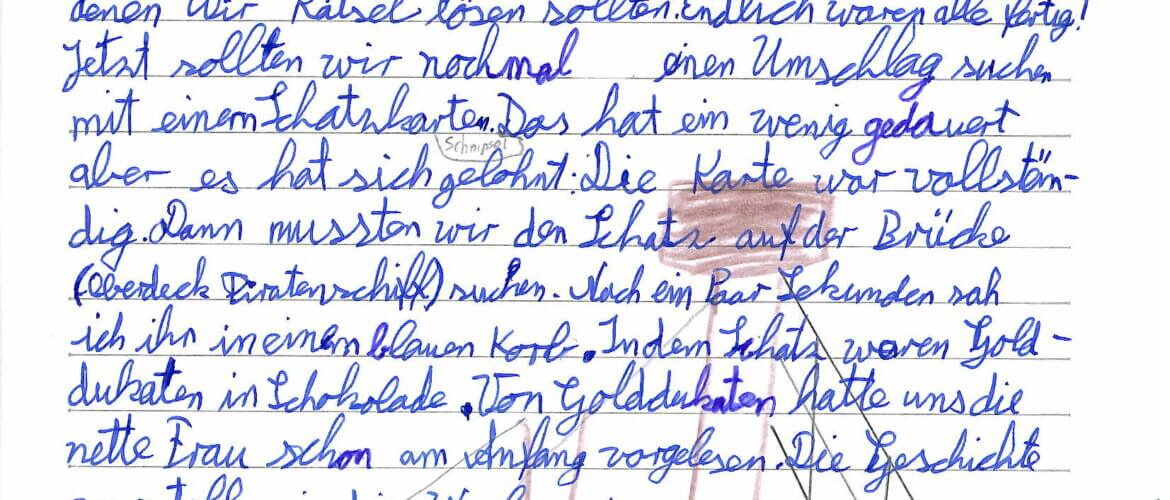 denen wir Rätsel lösen sollten. Endlich waren alle fertig!
Jetzt sollten wir nochmal einen Umschlag suchen
mit einem Schatzkarten. Das hat ein wenig gedauert
Schnipsel
aber es hat sich gelohnt: Die Karte war vollstän-
dig. Dann mussten wir den Schatz auf der Brücke
(Oberdeck Piratenschiff) suchen. Nach ein Paar Sekunden sah
ich ihn in einem blauen Korb. In dem Schatz waren Gold-
dukaten in Schokolade. Von Golddukaten hatte uns die
nette Frau schon am Anfang vorgelesen. Die Geschichte